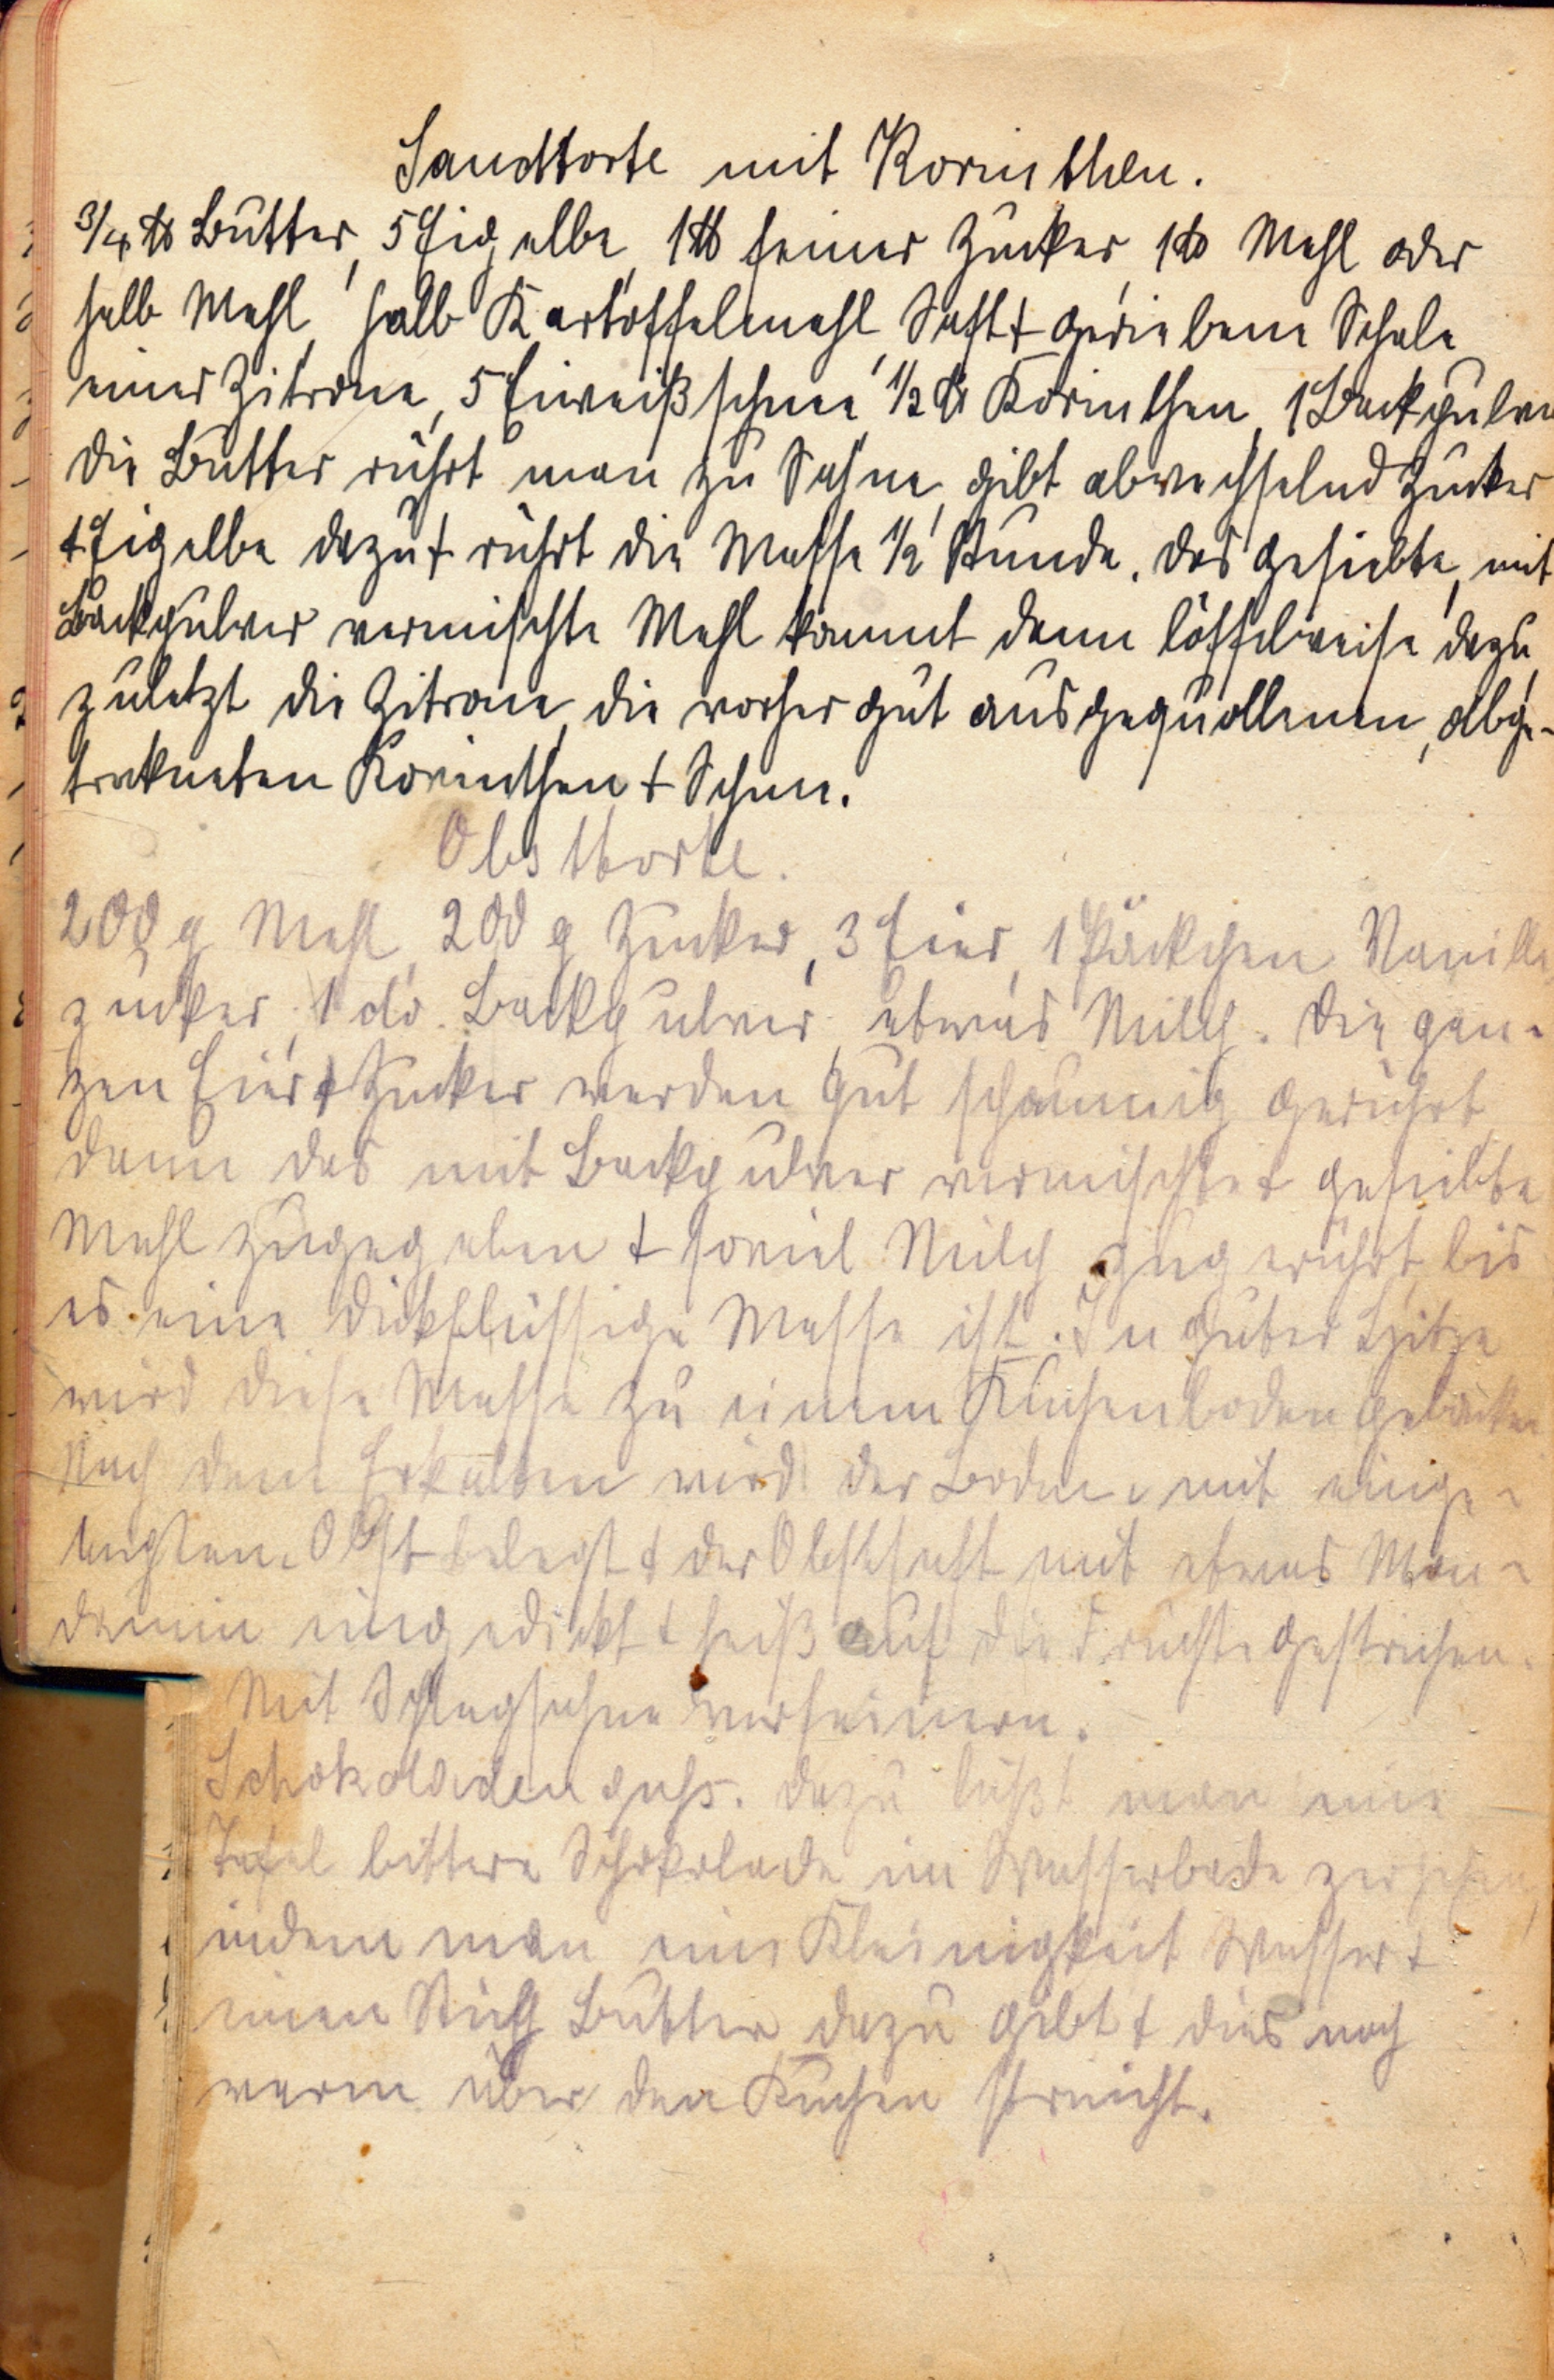 Sandtorte mit Korinthen.
3/4 ℔ Butter, 5 Eigelbe, 1 ℔ feiner Zucker, 1 ℔ Mehl oder
halb Mehl, halb Kartoffelmehl, Saft + geriebene Schale
einer Zitrone, 5 Eiweißschnee, 1/2 ℔ Korinthen, 1 Backpulver
Die Butter rührt man zu Sahne, gibt abwechselnd Zucker
+ Eigelbe dazu + rührt die Masse 1/2 Stunde. Das gesiebte, mit
Backpulver vermischte Mehl kommt dann löffelweise dazu,
zuletzt die Zitrone, die vorher gut ausgequollenen, abge-
trockneten Korinthen + Schnee.
Obsttorte.
200 g Mehl, 200 g Zucker, 3 Eier, 1 Päckchen Vanille
zucker, 1 do. Backpulver, etwas Milch. Die gan-
zen Eier + Zucker werden gut schaumig gerührt,
dann das mit Backpulver vermischte + gesiebte
Mehl zugegeben + soviel Milch zugerührt, bis
es eine dickflüssige Masse ist. In guter Hitze
wird diese Masse zu einem Kuchenboden gebacken
Nach dem Erkalten wird der Boden mit einge-
legten Obst belegt + der Obstsaft mit etwas Mon-
damin eingedickt + heiß auf die Früchte gestrichen.
Mit Schlagsahne verfeinern.
Schokoladenguß. Dazu läßt man eine
Tafel bittere Schokolade im Wasserbade zergehen,
indem man eine Kleinigkeit Wasser +
einen Stich Butter dazu gibt + dies noch
warm über den Kuchen streicht.